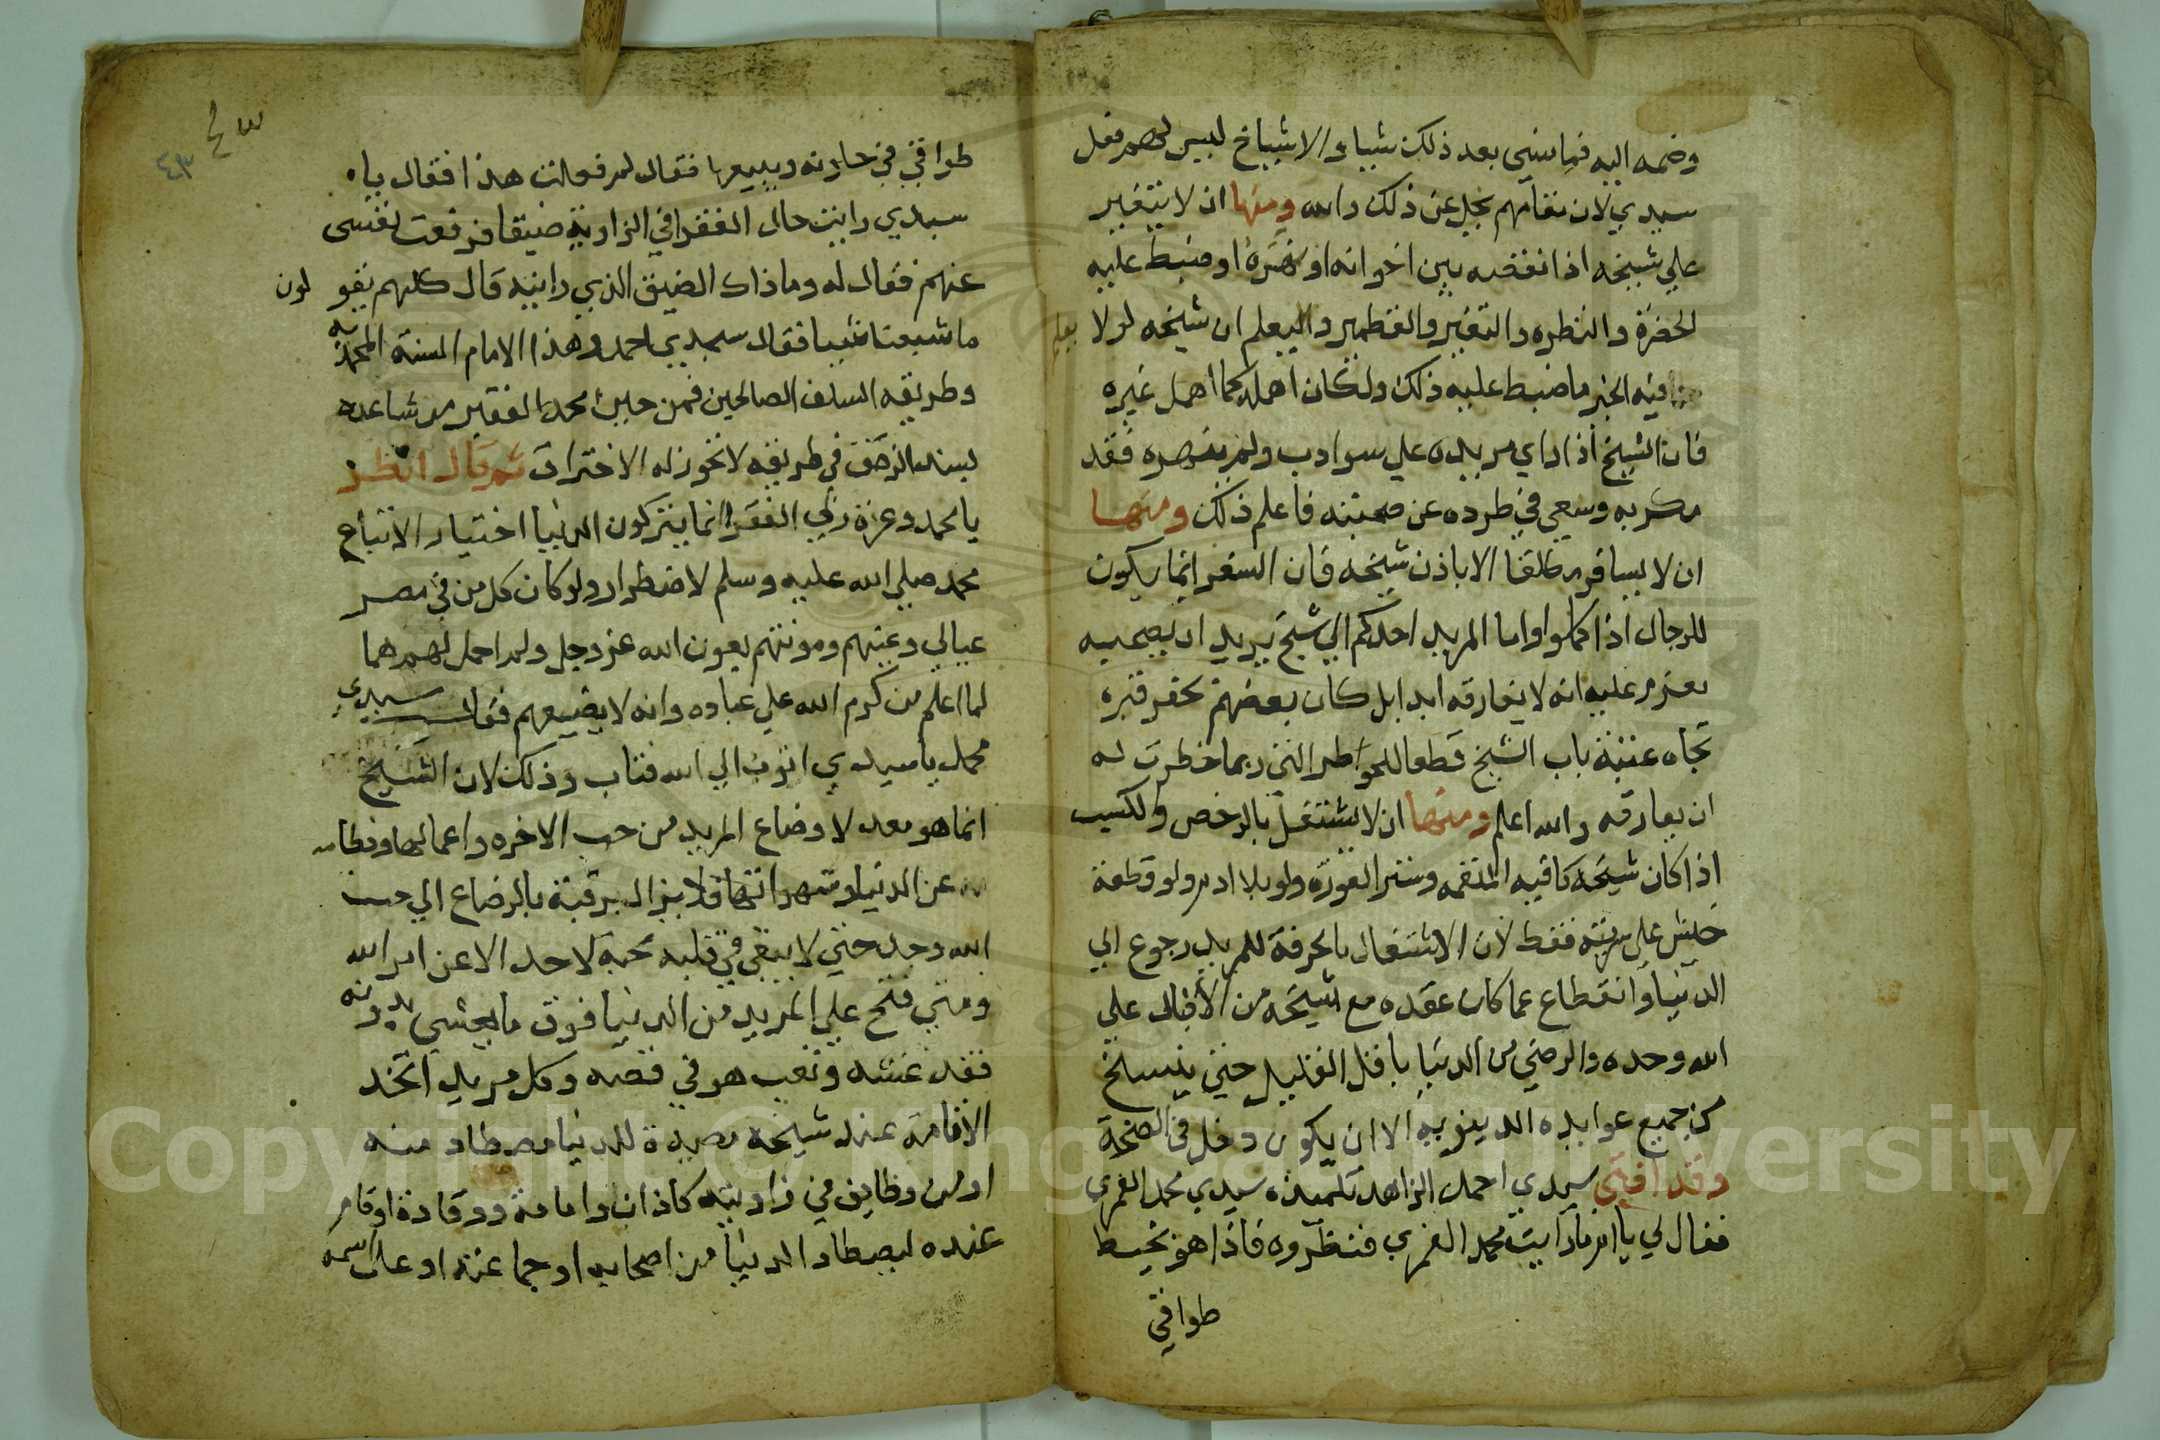 وضمه اليه فما نسي بعد ذلك شيا والاشياخ ليس لهم فعل
سيدي لان مقامهم يجل عن ذلك والله ومنها ان لا يتغير
علي شيخه اذا نقصه بين اخوانه او نهره او ضبط عليه
الخضرة والنظره والتغير والقطمير واليعلم ان شيخه لولا يعلم
فيه الخير ما ضبط عليه ذلك ولكان اهمله كما اهمل غيره
فان الشيخ اذا راي مريده علي سوادب ولم ينهره فقد
مكر به وسعي في طرده عن صحبته فاعلم ذلك ومنها
ان لا يسافر مطلقا الا باذن شيخه فان السفر انما يكون
للرجال اذا كملوا واما المريد احدكم الي شيخ يريد ان يصحبه
يعزم عليه انه لا يفارقه ابدا بل كان بعضهم يحفر قبره
تجاه عتبة باب الشيخ قطعا للخواطر التي ربما خطرت له
ان يفارقه والله اعلم ومنها ان لا يشتغل بالرخص والكسب
اذا كان شيخه كافيه اللقمه وستر العوره ولو بلا ادم ولو قطعة
خيش علي سرته فقط لان الاشتغال بالحرفة للمريد رجوع الي
الدنيا وانقطاع عما كان عقده مع شيخه من الاقبال علي
الله وحده والرضي من الدنيا باقل القليل حتي ينسلخ
من جميع عوايده الدنيويه الا ان يكون دخل في الصحة
وقد افتي سيدي احمد الزاهد تلميذه سيدي محمد الغمري
فقال لي يا ما رايت محمد الغمري فنظروه فاذا هو يخيط
طواقي
٤٣
٤٣
طواقي في حارته ويبيعها فقال لم فعلت هذا فقال يا
سيدي رايت حال الفقرا في الزاوية ضيقا فرفعت نفسي
عنهم فقال له وما ذاك الضيق الذي رايته قال كلهم يقو لون
ما شبعنا شيا فقال سيدي احمد وهذا الامام السنة المحمديه
وطريقه السلف الصالحين فمن حين محمد الفقير مر شاعده
لبنداالزحف في طريقه لا تخوز له الاختراف ثم قال انظر
يا محمد وعزة ربي الفقرا انما يتركون الدنيا اختيار الاتباع
محمد صلي الله عليه وسلم لاضطرار ولو كان كل من في مصر
عيالي وعبتهم ومونتهم بعون الله عز وجل ولم احمل لهم هما
لما اعلم من كرم الله علي عباده وانه لا يضيعهم فقال سيدي
محمد يا سيدي اتوب الي الله فتاب وذلك لان الشيخ
انما هو معد لارضاع المريد من حب الاخره واعمالها وفطامه
عن الدنيا وشهواتها فلا يزال يرقبه بالرضاع الي حب
الله وحده حتي لا يبقي في قلبه محبة لاحد الا عن امر الله
ومتي فتح علي المريد من الدنيا فوق ما يجشي بدونه
فقد غشه وتعب هو في قصه وكل مريد اتخذ
الاقامة عند شيخه مصيدة للدنيا مصطاد منه
او من وظايف في زاويته كاذان وامامة ووقادة او قام
عنده ليصطاد الدنيا من اصحابه او جماعته او علي اسمه
Copyright © King Saud University